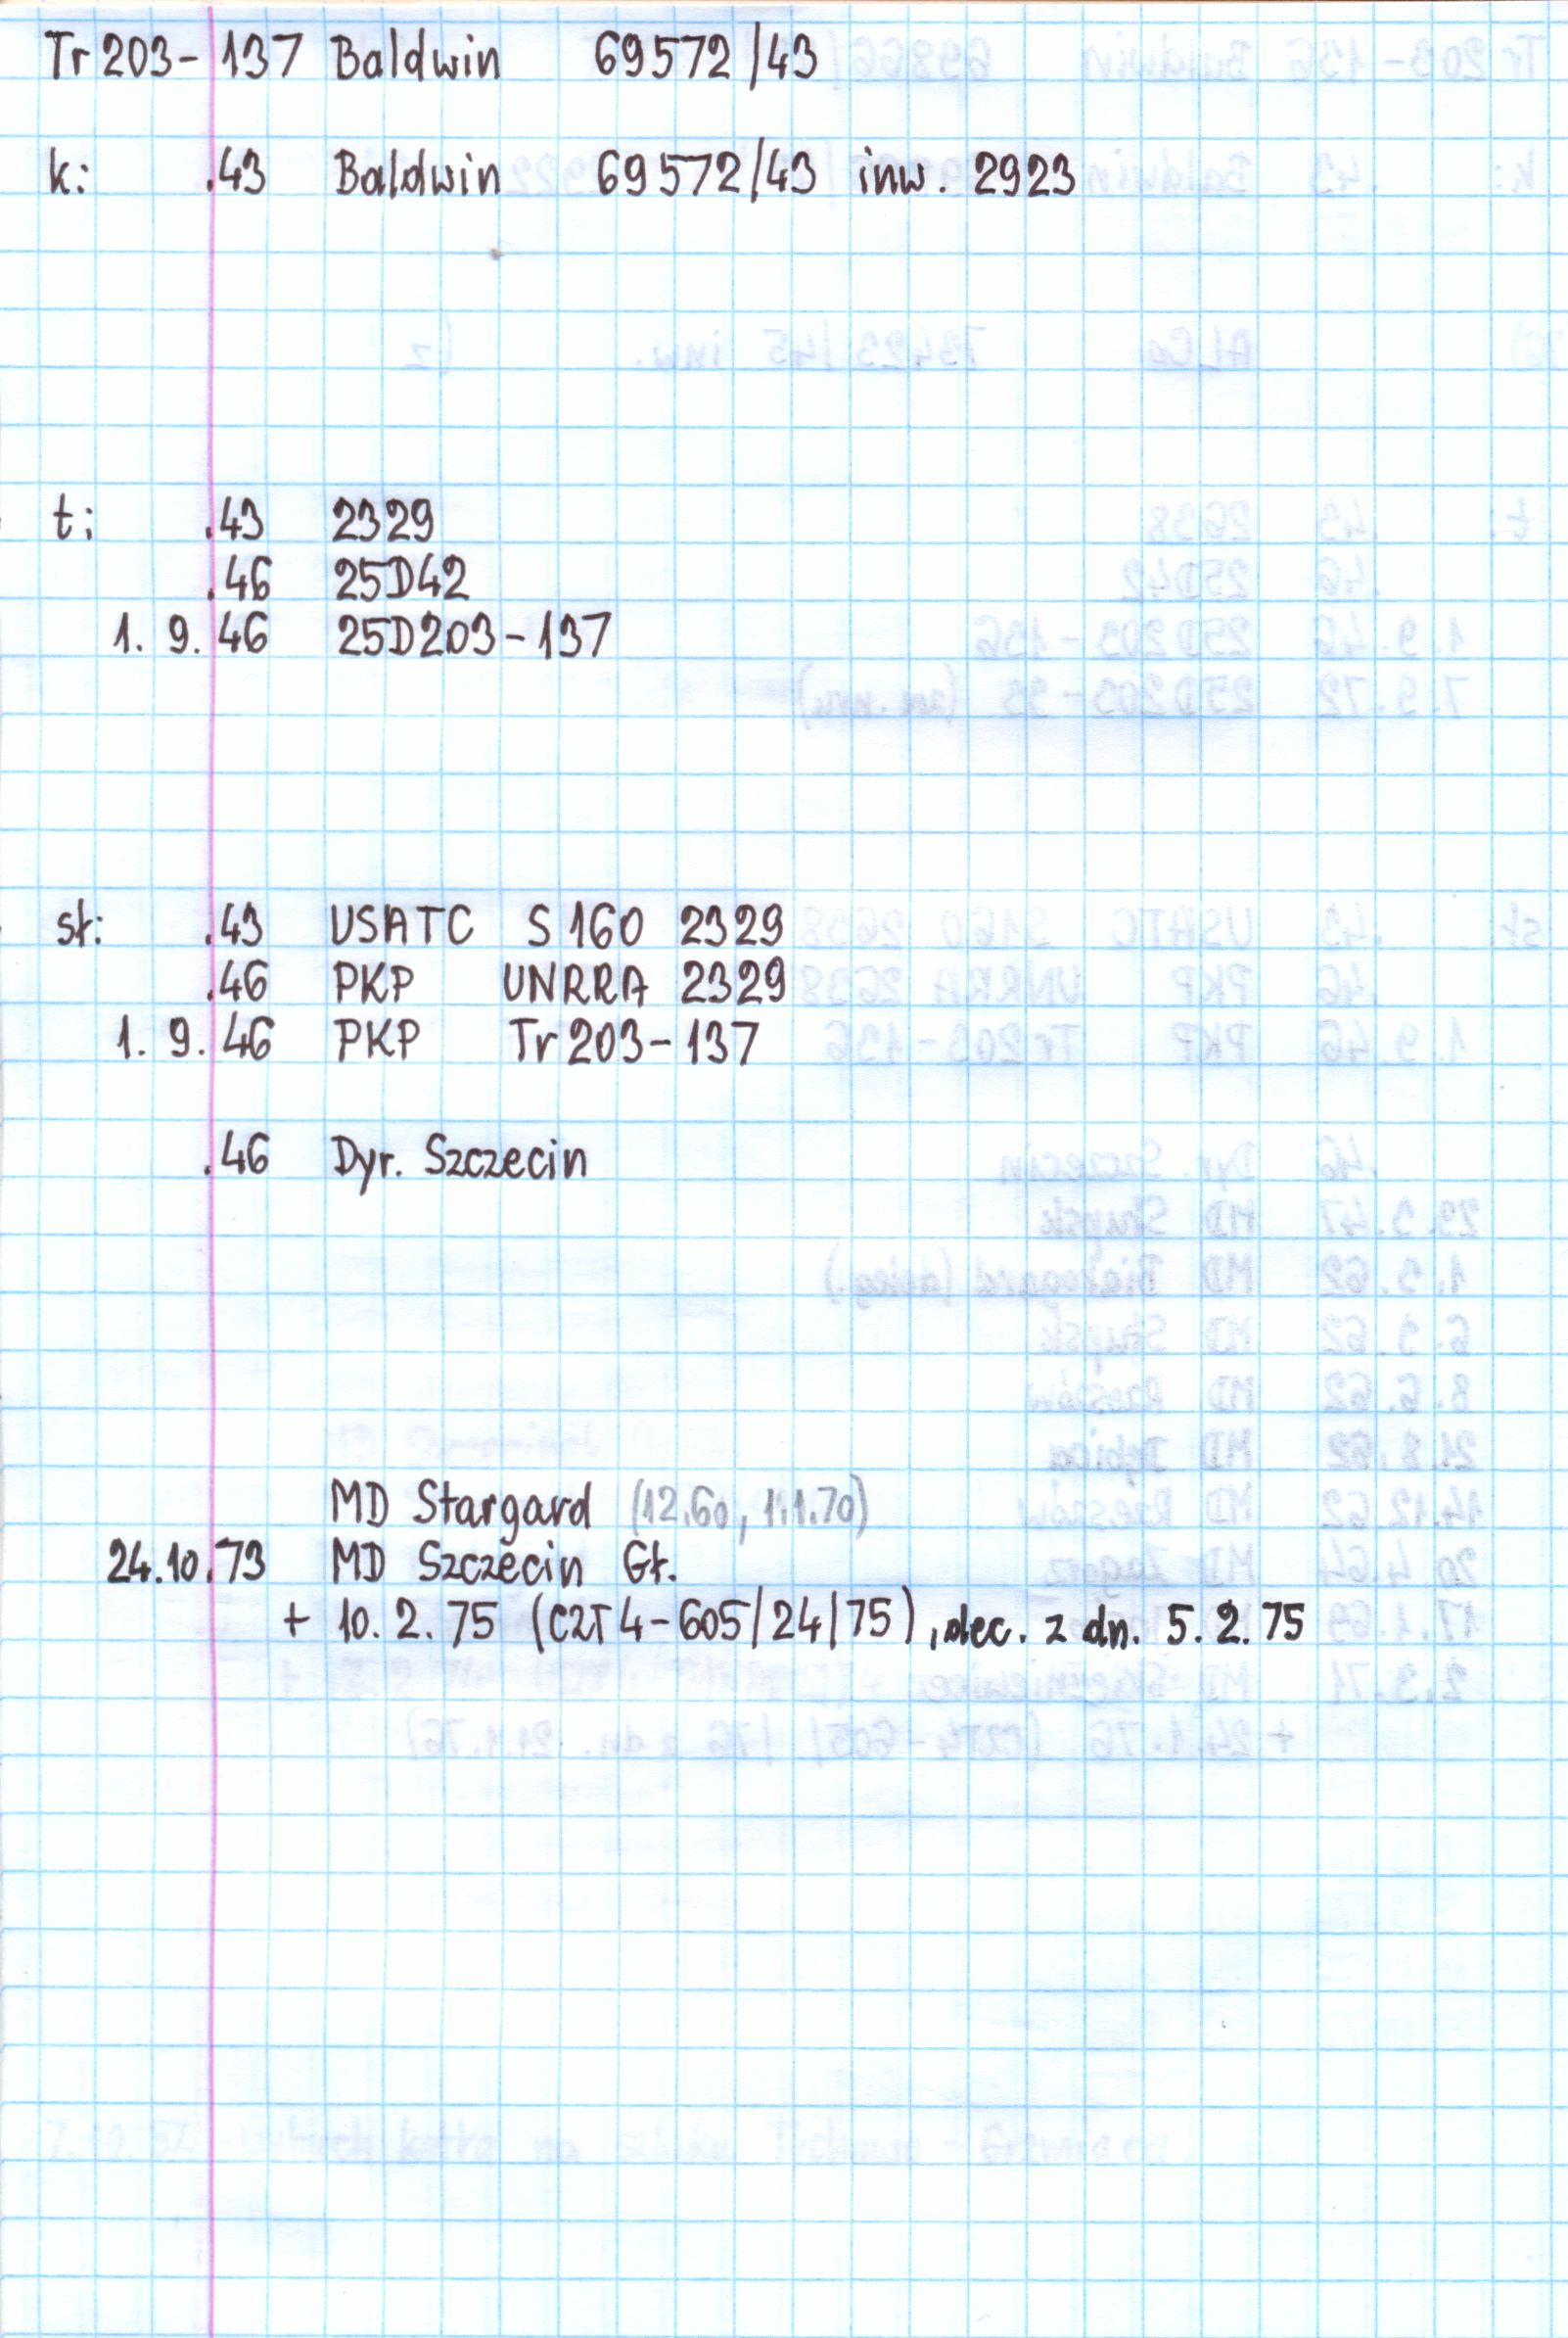 Tr203-137 Baldwin 69572/43
k: .43 Baldwin 69572/43 inw. 2923
t: .43 2329
.46 25D42
1. 9.46 25D203-137
sł: .43 USATC S160 2329
.46 PKP UNRRA 2329
1. 9.46 PKP Tr203-137
.46 Dyr. Szczecin
MD Stargard (12.60, 1.1.70)
24.10.73 MD Szczecin Gł.
+ 10. 2. 75 (CZT4-605/24/75), dec. z dn. 5.2.75